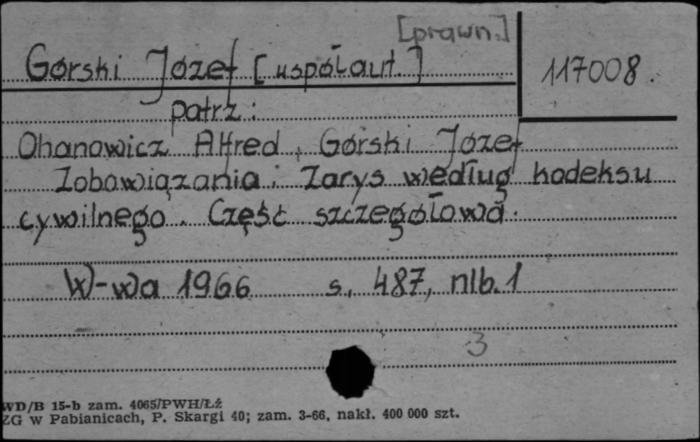 [prawn.]
Górski Józef [współaut.]
117008.
patrz:
Ohanowicz Alfred, Górski Józef
Zobowiązania. Zarys według kodeksu
cywilnego. Część szczegółowa.
W-wa 1966 s. 487, nlb. 1
3
WD/B 15-b zam. 4065/PWH/Łź
ZG w Pabianicach, P. Skargi 40; zam. 3-66, nakł. 400 000 szt.